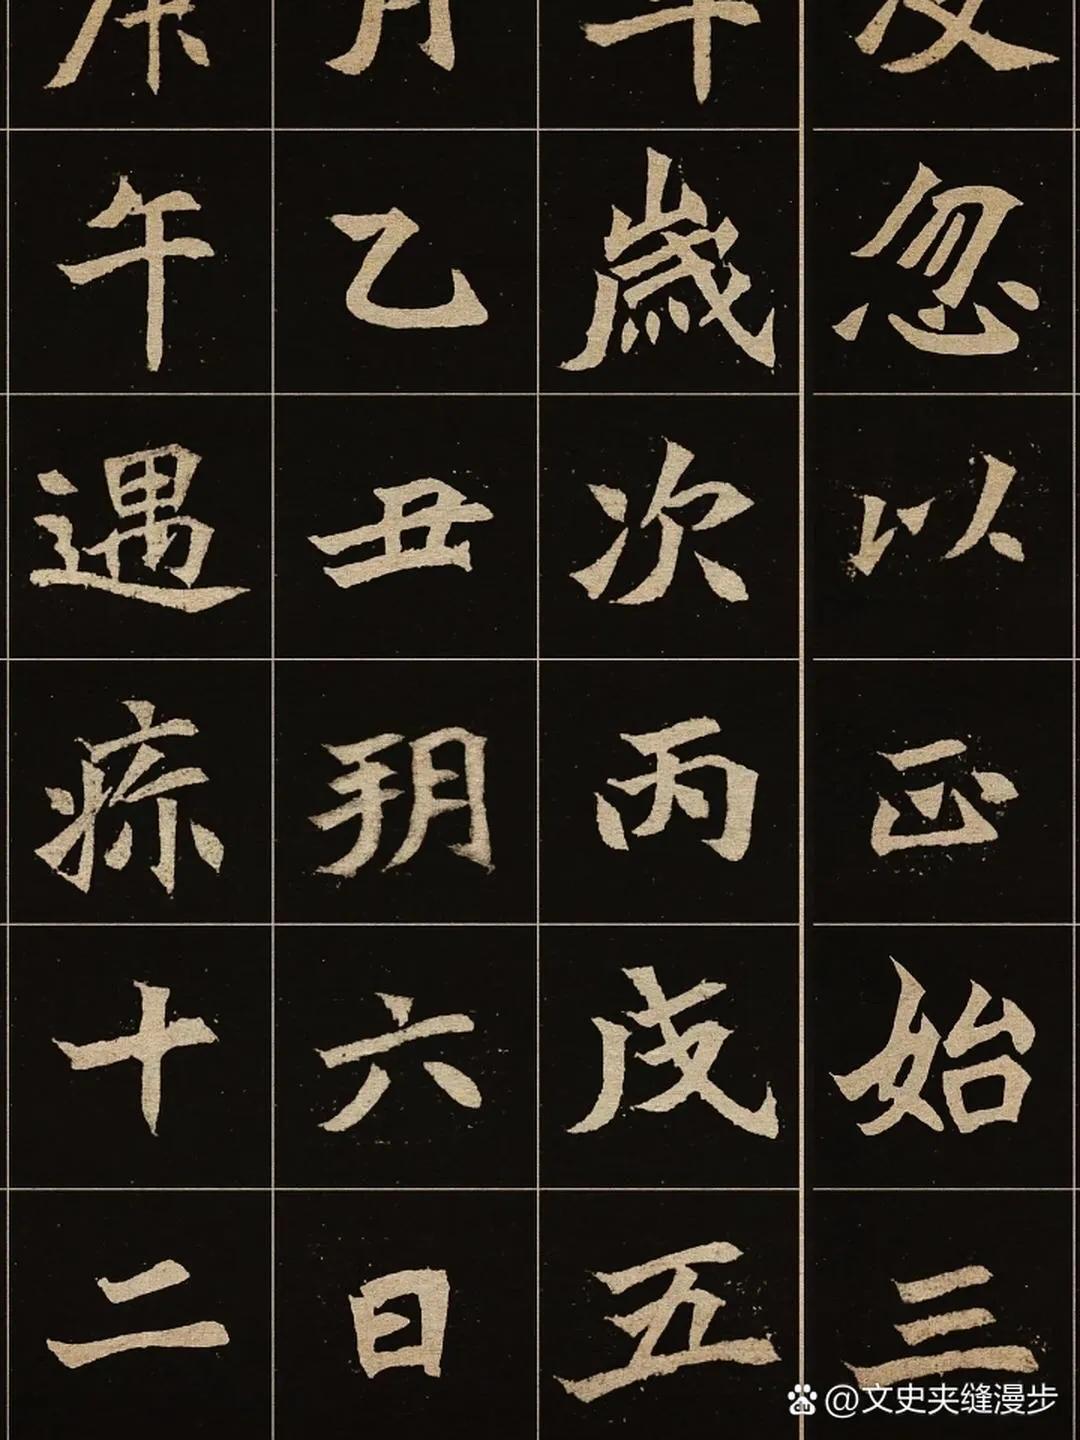 忽以正始三
年歲次丙戌五
月乙丑朔六日
午遇十二
@文史夹缝漫步